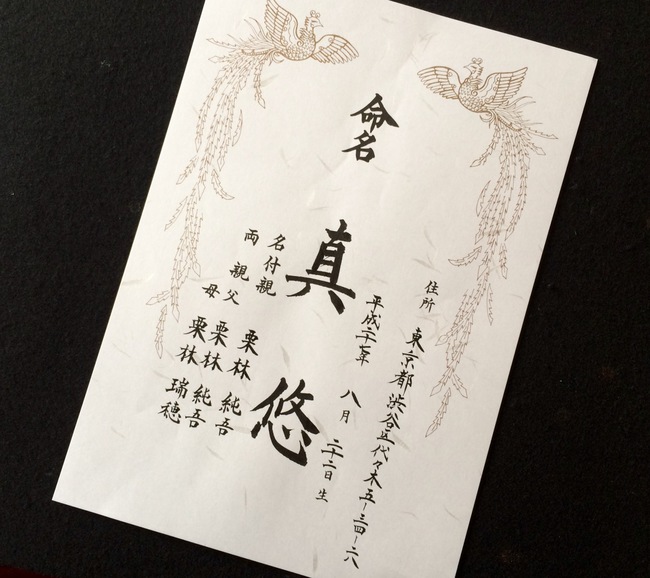 住所 東京都渋谷区代々木五-三四-六
平成二十七年 八月 二十二日生
命名
真悠
名付親 栗林 純吾
両親 父 栗林 純吾
母 栗林 瑞穂